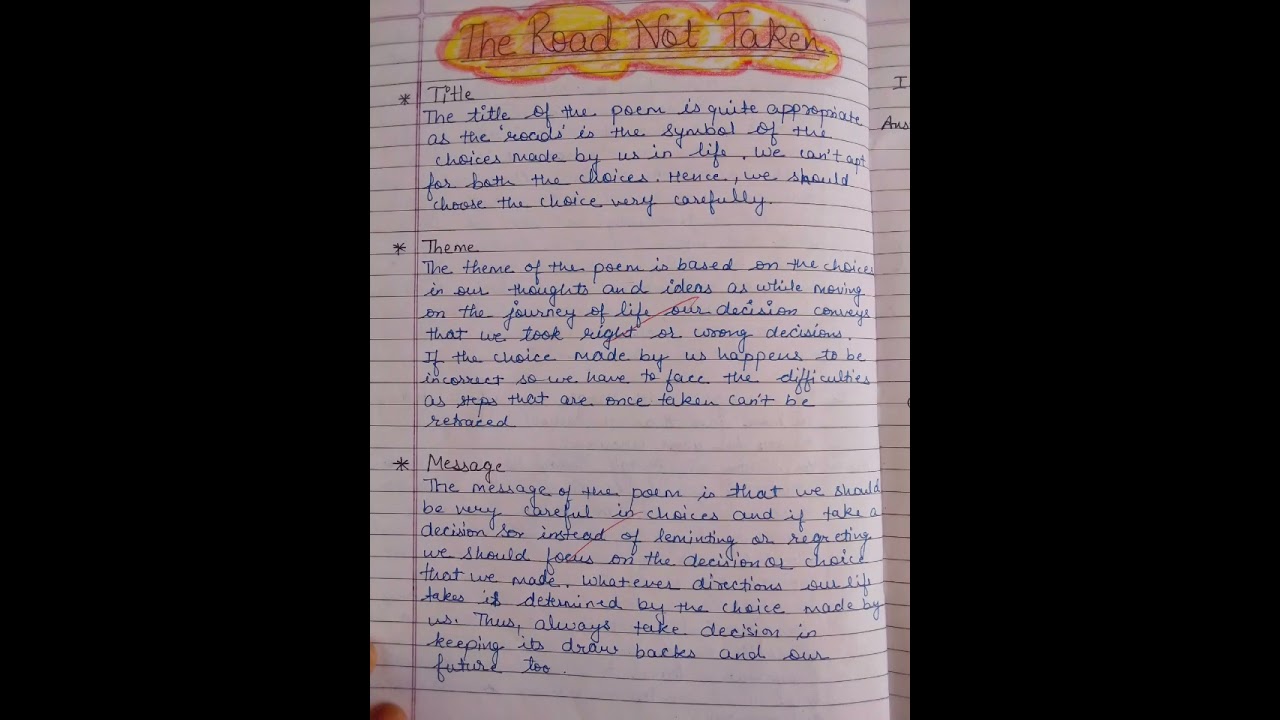 The Road Not Taken.
* Title
The title of the poem is quite appropriate
as the 'roads' is the symbol of the
choices made by us in life. We can't opt
for both the choices. Hence, we should
choose the choice very carefully.
* Theme
The theme of the poem is based on the choices
in our thoughts and ideas as while moving
on the journey of life our decision conveys
that we took right or wrong decisions.
If the choice made by us happens to be
incorrect so we have to face the difficulties
as steps that are once taken can't be
retraced
* Message
The message of the poem is that we should
be very careful in choices and if take a
decision instead of leminting or regreting
we should focus on the decision or choice
that we made. Whatever directions our life
takes is determined by the choice made by
us. Thus, always take decision in
keeping its draw backs and our
future too.
I
Ans